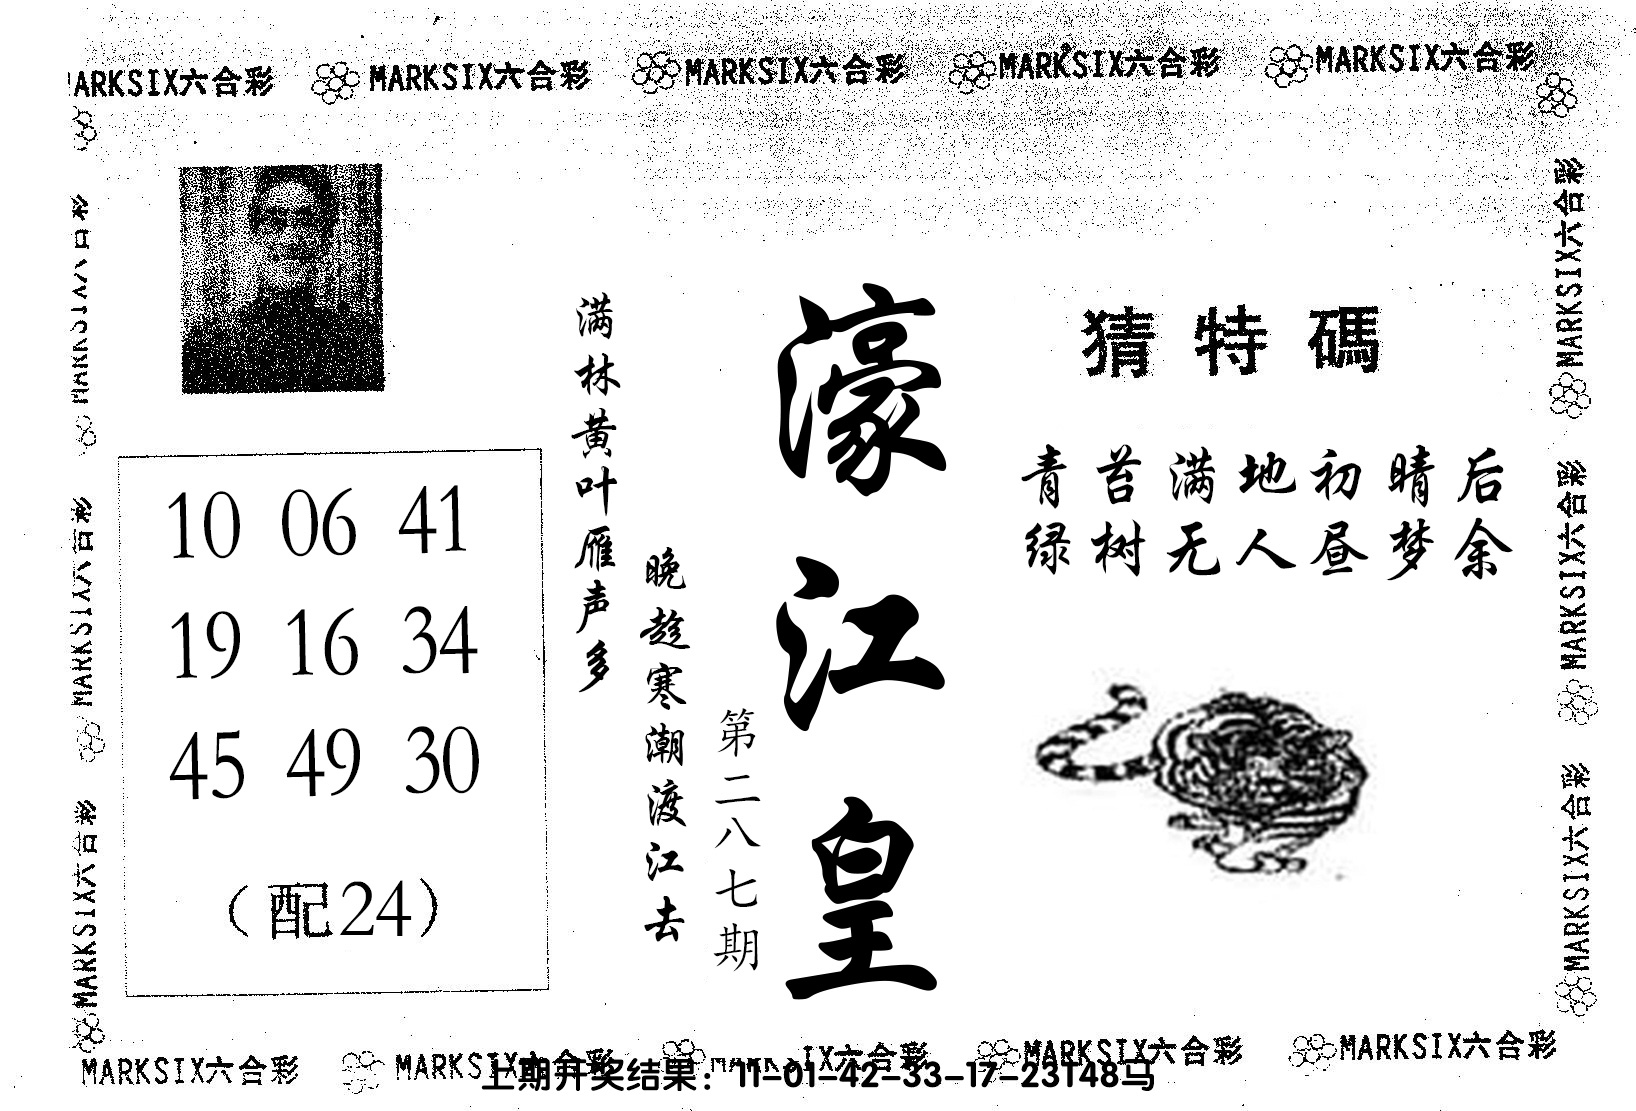 MARKSIX六合彩 MARKSIX六合彩 MARKSIX六合彩 MARKSIX六合彩
MARKSIX六合彩
MARKSIX六合彩
MARKSIX六合彩
MARKSIX六合彩
MARKSIX六合彩
MARKSIX六合彩
10 06 41
19 16 34
45 49 30
（配24）
濠江皇
第二八七期
晚趁寒潮渡江去
满林黄叶雁声多
猜特碼
青苔满地初晴后
绿树无人昼梦余
MARKSIX六合彩 MARKSIX六合彩 MARKSIX六合彩 MARKSIX六合彩
上期开奖结果：11-01-42-33-17-23T48马